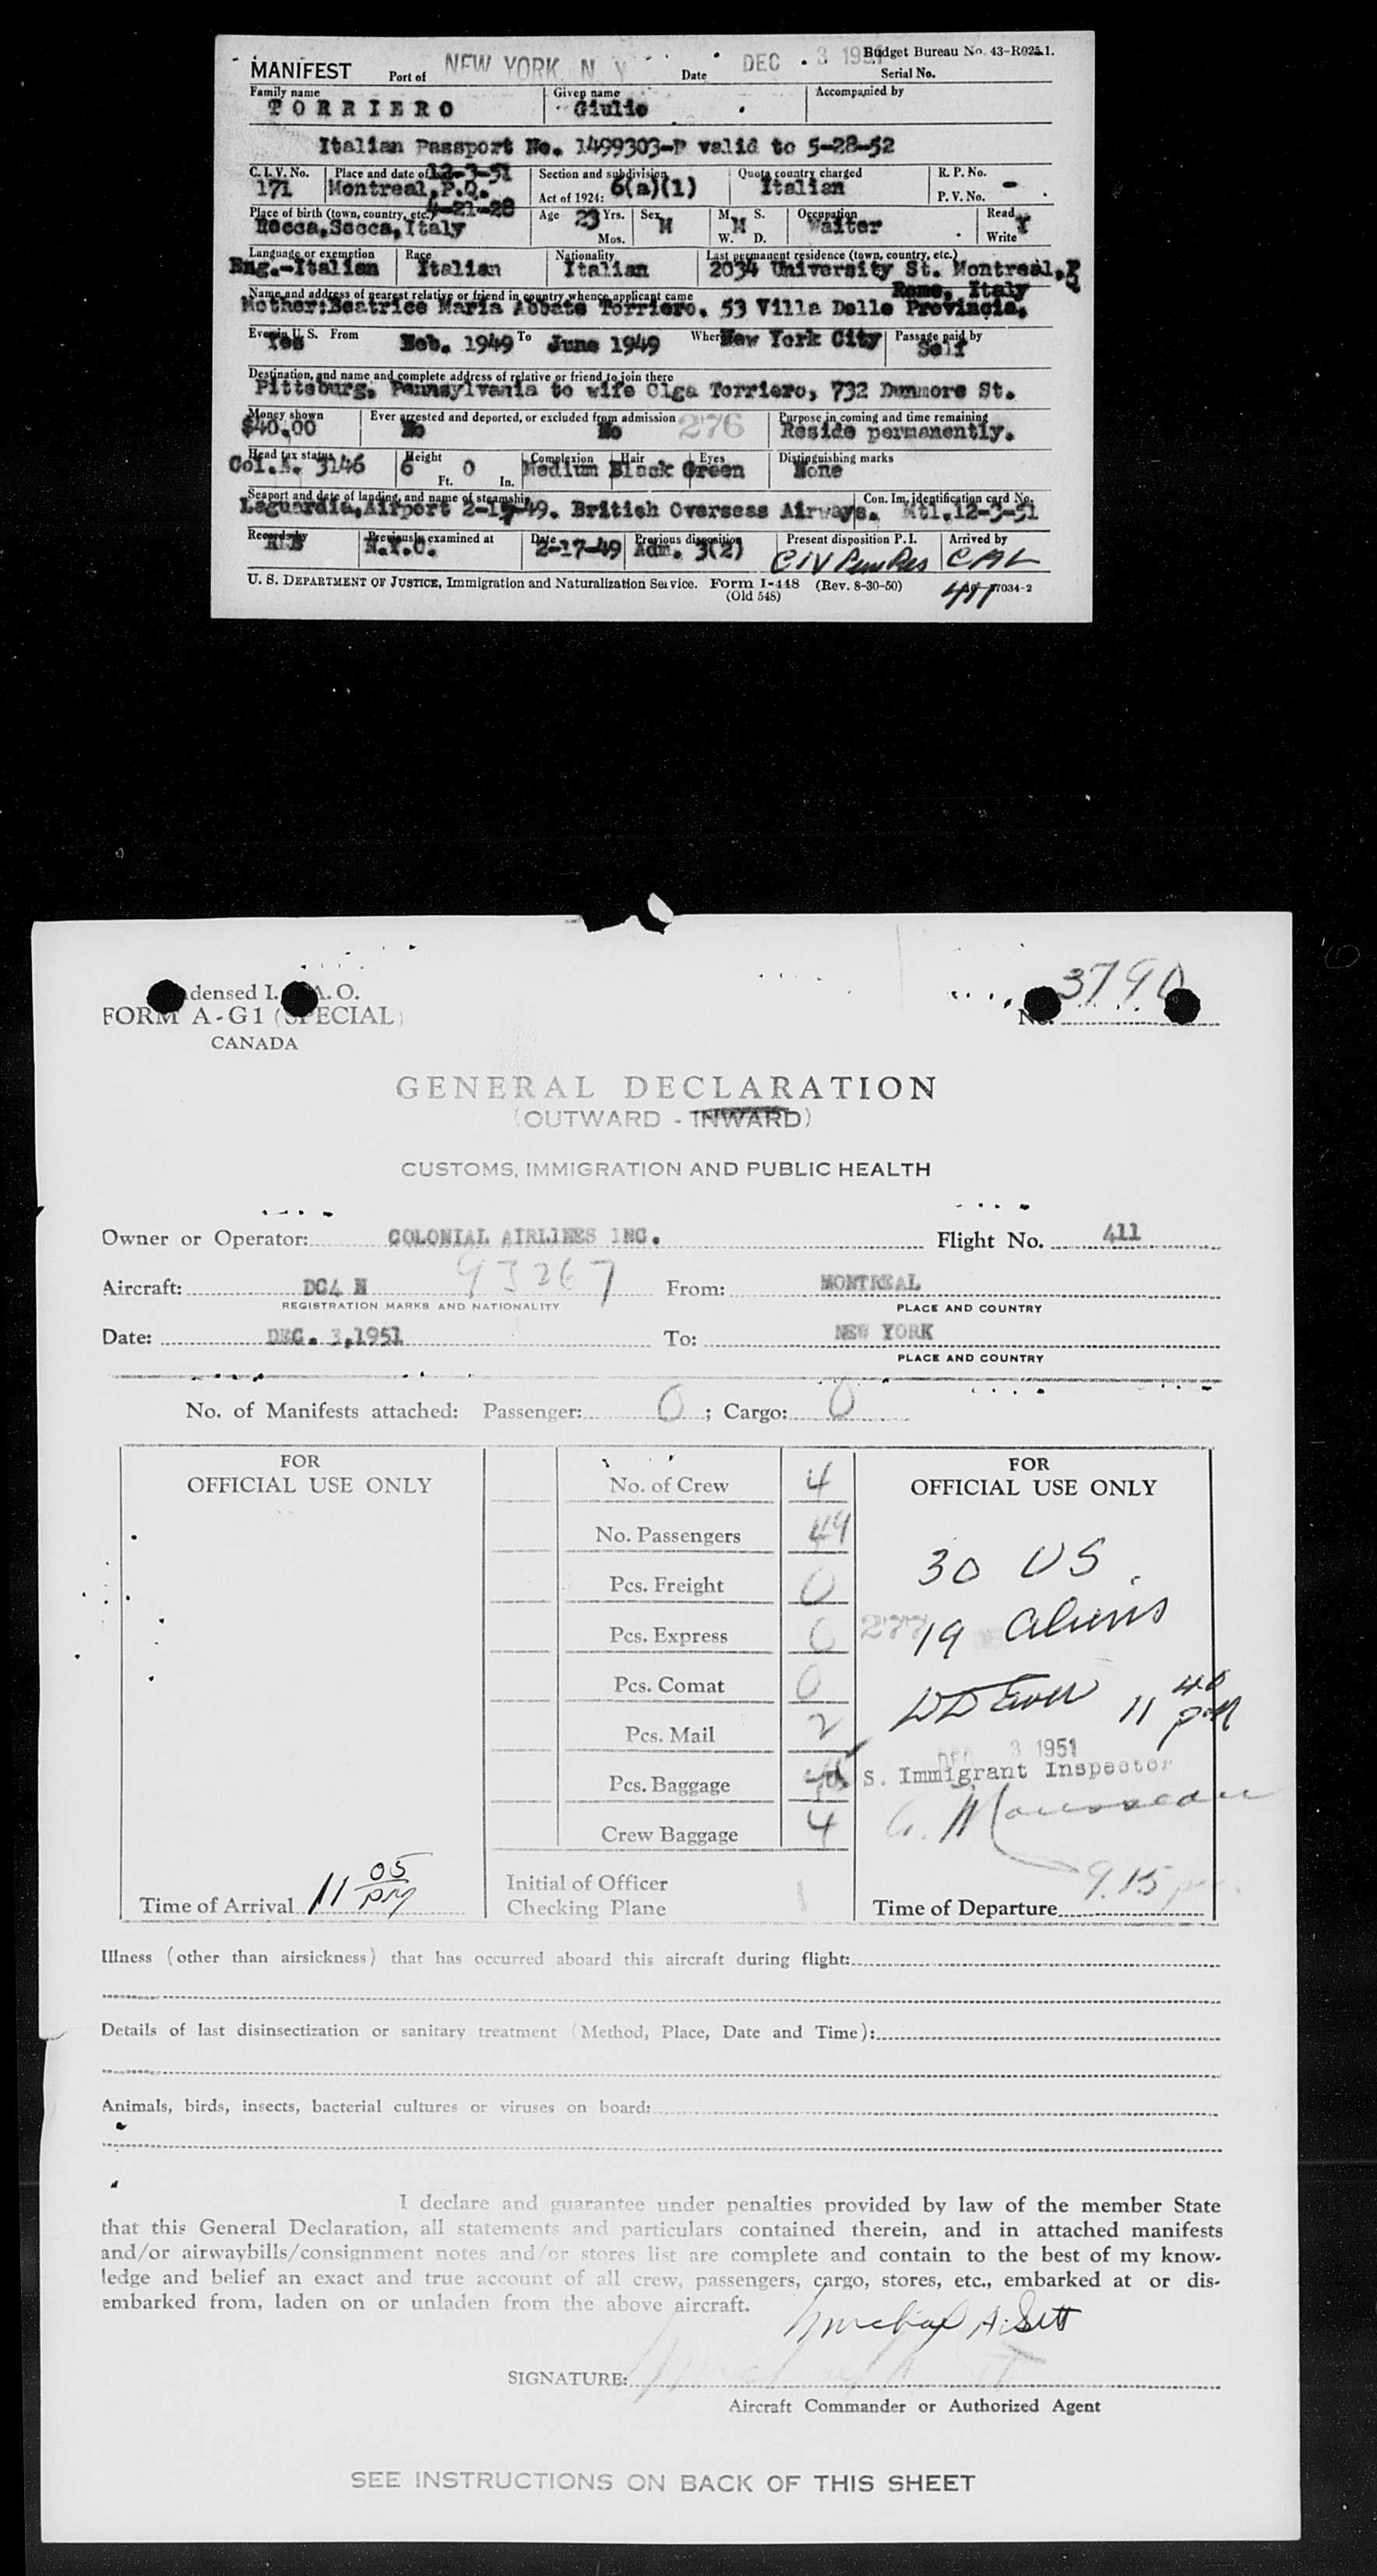 MANIFEST Port of NEW YORK, N. Y. Date DEC 3 1951 Budget Bureau No. 43-R025.1.
Serial No.
Family name Given name Accompanied by
TORRIERO Giulio
Italian Passport No. 1499303-P valid to 5-28-52
C. I. V. No. Place and date of 12-3-51 Section and subdivision Quota country charged R. P. No.
171 Montreal, P.Q. Act of 1924: 6(a)(1) Italian P. V. No. -
Place of birth (town, country, etc.) 4-21-28 Age 23 Yrs. Sex M. S. Occupation Read
Italy Mos. M M W. D. Waiter Write Y
Language or exemption Race Nationality Last permanent residence (town, country, etc.)
Eng.-Italian Italian Italian 2034 University St. Montreal, P Q
Name and address of nearest relative or friend in country whence applicant came Rome, Italy
Mother: Beatrice Maria Abbate Torriero. 53 Villa Delle Provincia,
Ever in U. S. From To Where Passage paid by
Yes Feb. 1949 June 1949 New York City Self
Destination, and name and complete address of relative or friend to join there
Pittsburg, Pennsylvania to wife Olga Torriero, 732 Dunmore St.
Money shown Ever arrested and deported, or excluded from admission Purpose in coming and time remaining
$40.00 No No 276 Reside permanently.
Head tax status Height Complexion Hair Eyes Distinguishing marks
Col.A. 3146 6 Ft. 0 In. Medium Black Green None
Seaport and date of landing, and name of steamship Con. Im. identification card No.
Laguardia, Airport 2-17-49. British Overseas Airways. Mtl. 12-3-51
Records by Previously examined at Date Previous disposition Present disposition P. I. Arrived by
N.Y.C. 2-17-49 Adm. 3(2) CIV Perm Res CAL
U. S. DEPARTMENT OF JUSTICE, Immigration and Naturalization Service. Form I-448 (Rev. 8-30-50) 411 7034-2
(Old 548)
densed I. A. O.
FORM A-G1 (SPECIAL) No. 3790
CANADA
GENERAL DECLARATION
(OUTWARD - INWARD)
CUSTOMS, IMMIGRATION AND PUBLIC HEALTH
Owner or Operator: COLONIAL AIRLINES INC. Flight No. 411
Aircraft: DC4 N 93267 From: MONTREAL
REGISTRATION MARKS AND NATIONALITY PLACE AND COUNTRY
Date: DEC. 3, 1951 To: NEW YORK
PLACE AND COUNTRY
No. of Manifests attached: Passenger: 0 ; Cargo: 0
FOR OFFICIAL USE ONLY
No. of Crew 4
No. Passengers 49
Pcs. Freight 0
Pcs. Express 0
Pcs. Comat 0
Pcs. Mail 2
Pcs. Baggage
Crew Baggage 4
Initial of Officer
Checking Plane
Time of Arrival 11 05 PM
FOR OFFICIAL USE ONLY
30 US
277 19 Aliens
11 40 PM
DEC 3 1951
S. Immigrant Inspector
9.15
Time of Departure
Illness (other than airsickness) that has occurred aboard this aircraft during flight:
Details of last disinsectization or sanitary treatment (Method, Place, Date and Time):
Animals, birds, insects, bacterial cultures or viruses on board:
I declare and guarantee under penalties provided by law of the member State
that this General Declaration, all statements and particulars contained therein, and in attached manifests
and/or airwaybills/consignment notes and/or stores list are complete and contain to the best of my know-
ledge and belief an exact and true account of all crew, passengers, cargo, stores, etc., embarked at or dis-
embarked from, laden on or unladen from the above aircraft.
SIGNATURE:
Aircraft Commander or Authorized Agent
SEE INSTRUCTIONS ON BACK OF THIS SHEET